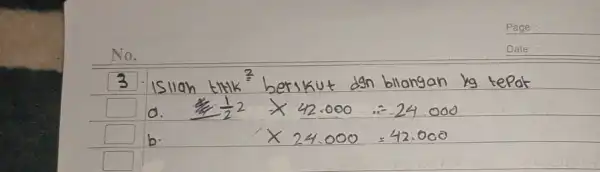 Page
No.
Date
3. Isilah titik² berikut dgn bilangan yg tepat
a. 1/2 2 × 42.000 = 24.000
b. × 24.000 = 42.000